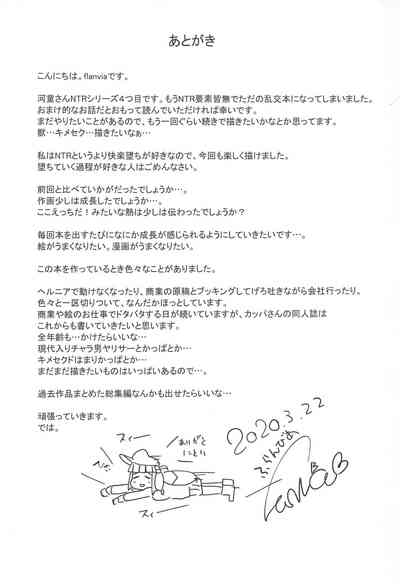 あとがき
こんにちは。flanviaです。
河童さんNTRシリーズ4つ目です。もうNTR要素皆無でただの乱交本になってしまいました。
おまけ的なお話だとおもって読んでいただければ幸いです。
まだやりたいことがあるので、もう一回ぐらい続きで描きたいかなとか思ってます。
獣…キメセク…描きたいなぁ…
私はNTRというより快楽堕ちが好きなので、今回も楽しく描けました。
堕ちていく過程が好きな人はごめんなさい。
前回と比べていかがだったでしょうか…。
作画少しは成長したでしょうか…。
ここえっちだ！みたいな熱は少しは伝わったでしょうか？
毎回本を出すたびになにか成長が感じられるようにしていきたいです…。
絵がうまくなりたい。漫画がうまくなりたい。
この本を作っているとき色々なことがありました。
ヘルニアで動けなくなったり、商業の原稿とブッキングしてげろ吐きながら会社行ったり、
色々と一区切りついて、なんだかほっとしています。
商業や絵のお仕事でドタバタする日が続いていますが、カッパさんの同人誌は
これからも書いていきたいと思います。
全年齢も…かけたらいいな…
現代入りチャラ男ヤリサーとかっぱとか…
キメセクドはまりかっぱとか…
まだまだ描きたいものはいっぱいあるので…。
過去作品まとめた総集編なんかも出せたらいいな…
頑張っていきます。
では。
2020.3.22
ふらんびあ
スィー
ありがと
にとり
スィー